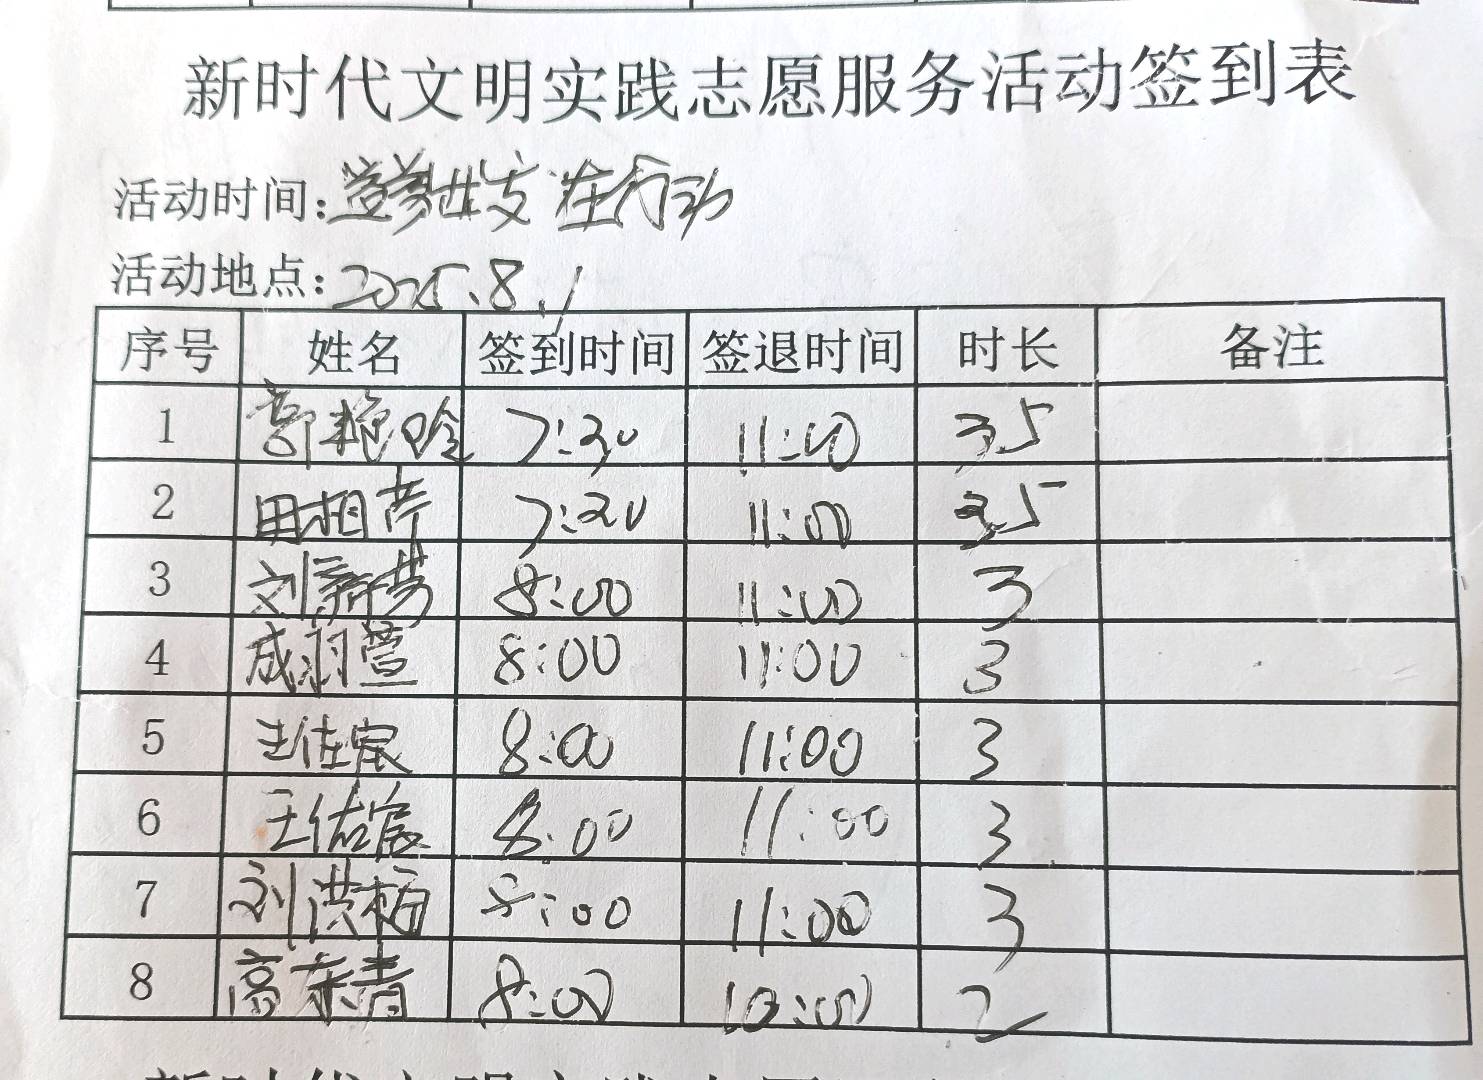 新时代文明实践志愿服务活动签到表
活动时间: 在行动
活动地点: 2025.8.1
序号 姓名 签到时间 签退时间 时长 备注
1 郭艳玲 7:30 11:00 3.5
2 田相芹 7:30 11:00 3.5
3 刘新芳 8:00 11:00 3
4 成羽萱 8:00 11:00 3
5 王佐宸 8:00 11:00 3
6 王佑宸 8:00 11:00 3
7 刘洪梅 8:00 11:00 3
8 高东青 8:00 10:00 2